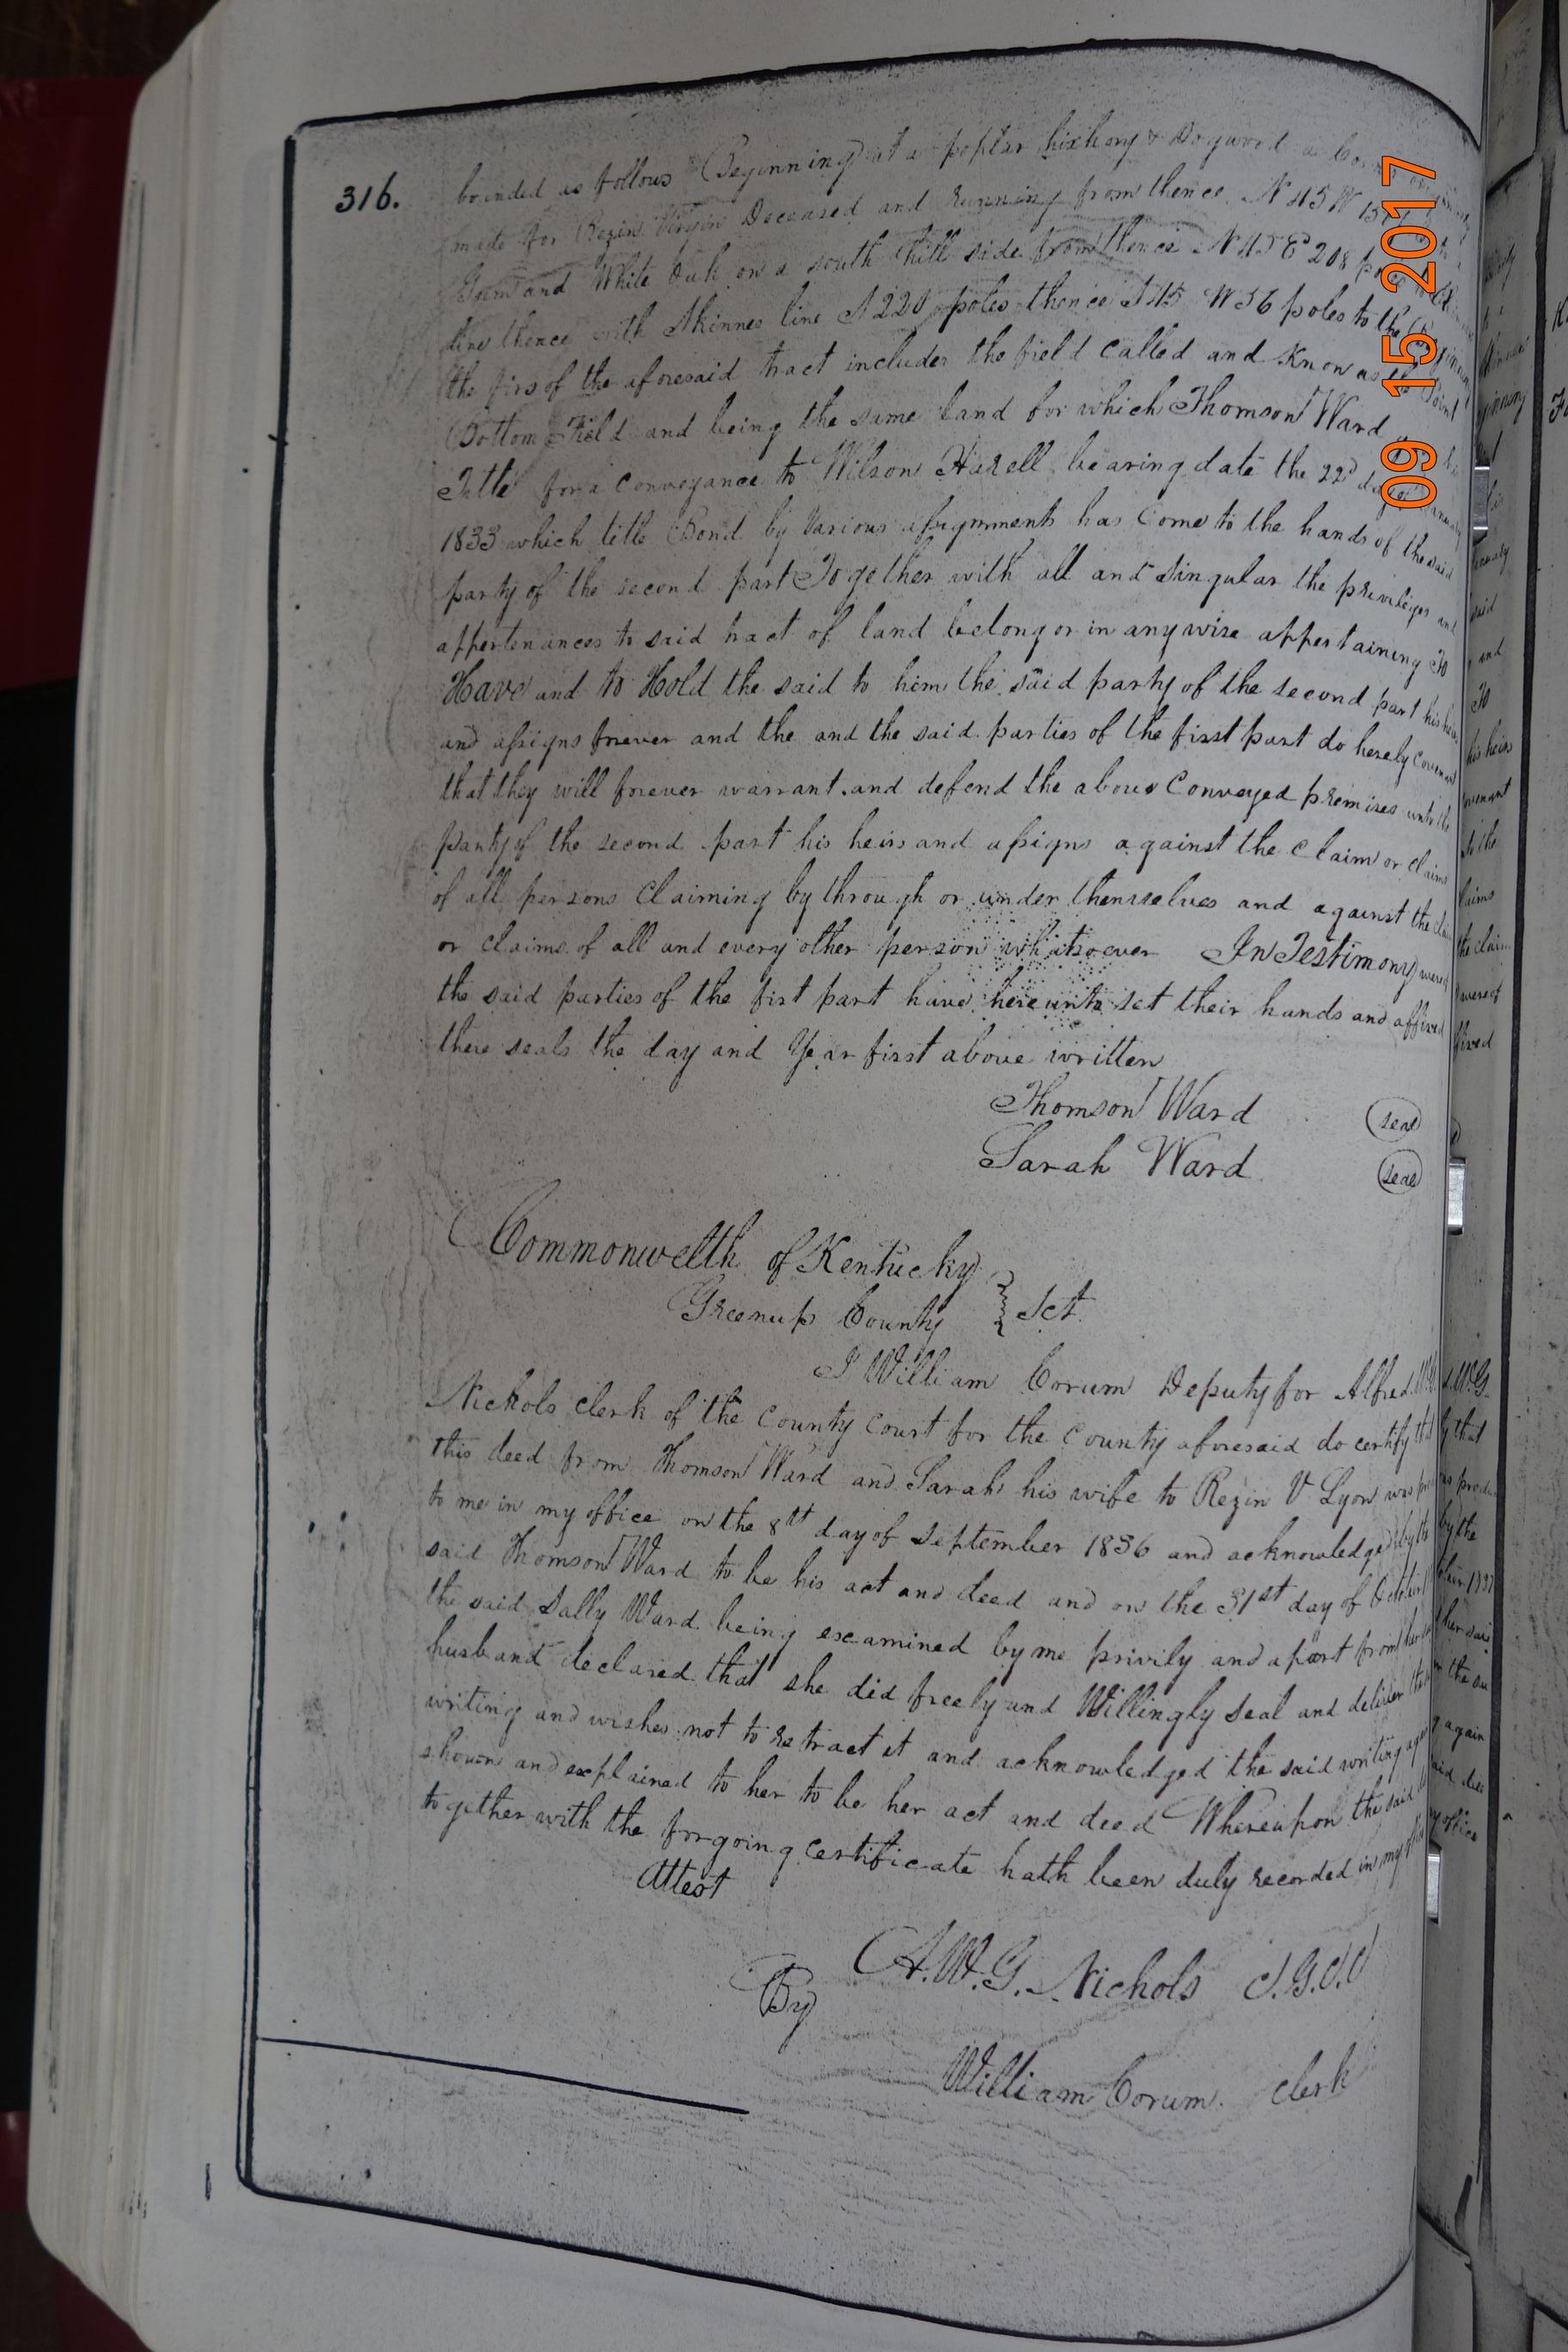 316.
bounded as follows Beginning at a poplar hickory & Dogwood a
made for Rezin Virgin Deceased and running from thence N 45 W
Gum and White Oak on a south hill side from thence N 45 E 208
line thence with Skinnes line S 220 poles thence S 45 W 56 poles to the Beginning
the firs of the aforesaid tract includes the field called and Know as the Point
Bottom Field and being the same land for which Thomson Ward
Title for a Conveyance to Wilson Hazell bearing date the 22d day of
1833 which title Bond by Various assignments has Come to the hands of the said
party of the second part Together with all and Singular the privileges and
appertenances to said tract of land belong or in any wise appertaining To
Have and to Hold the said to him the said party of the second part his heirs
and assigns forever and the and the said parties of the first part do hereby Covenant
that they will forever warrant and defend the above Conveyed premises unto the
party of the second part his heirs and assigns against the claim or claims
of all persons Claiming by through or under themselves and against the claim
or claims of all and every other person whatsoever In Testimony wereof
the said parties of the first part have hereunto set their hands and affixed
there seals the day and Year first above written
Thomson Ward (seal)
Sarah Ward (seal)
Commonwelth of Kentucky
Greenup County } Sct
I William Corum Deputy for Alfred W. G.
Nichols clerk of the County Court for the County aforesaid do certify that
this deed from Thomson Ward and Sarah his wife to Rezin V Lyon was
to me in my office on the 8th day of September 1836 and acknowledged by the
said Thomson Ward to be his act and deed and on the 31st day of October
the said Sally Ward being examined by me privily and apart from her said
husband declared that she did freely and Willingly Seal and deliver the
writing and wishes not to retract it and acknowledged the said writing again
shown and explained to her to be her act and deed Whereupon the said
together with the forgoing certificate hath been duly recorded in my office
Attest
A. W. G. Nichols C. G. C. C
By
William Corum. Clerk
09 15 2017